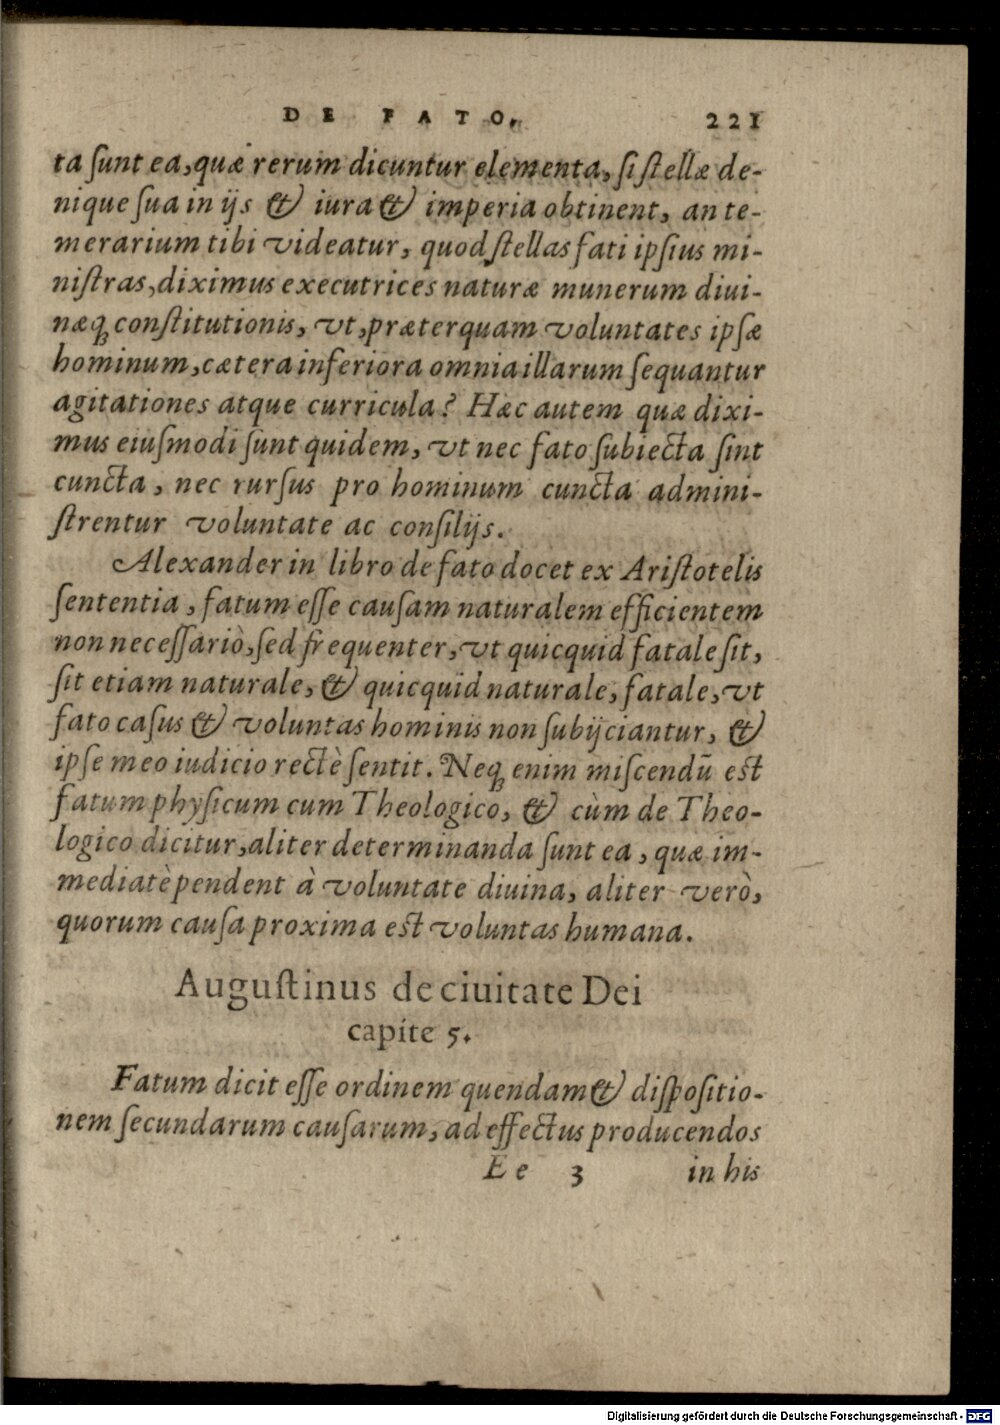 DE FATO. 221
ta sunt ea, quæ rerum dicuntur elementa, si stellæ de-
nique sua in ijs & iura & imperia obtinent, an te-
merarium tibi videatur, quod stellas fati ipsius mi-
nistras, diximus executrices naturæ munerum diui-
næq; constitutionis, vt, præterquam voluntates ipsæ
hominum, cætera inferiora omnia illarum sequantur
agitationes atque curricula? Hæc autem quæ dixi-
mus eiusmodi sunt quidem, vt nec fato subiecta sint
cuncta, nec rursus pro hominum cuncta admini-
strentur voluntate ac consilijs.
Alexander in libro de fato docet ex Aristotelis
sententia, fatum esse causam naturalem efficientem
non necessariò, sed frequenter, vt quicquid fatale sit,
sit etiam naturale, & quicquid naturale, fatale, vt
fato casus & voluntas hominis non subijciantur, &
ipse meo iudicio rectè sentit. Neq; enim miscendū est
fatum physicum cum Theologico, & cùm de Theo-
logico dicitur, aliter determinanda sunt ea, quæ im-
mediatè pendent à voluntate diuina, aliter verò,
quorum causa proxima est voluntas humana.
Augustinus de ciuitate Dei
capite 5.
Fatum dicit esse ordinem quendam & dispositio-
nem secundarum causarum, ad effectus producendos
Ee 3 in his
Digitalisierung gefördert durch die Deutsche Forschungsgemeinschaft - DFG